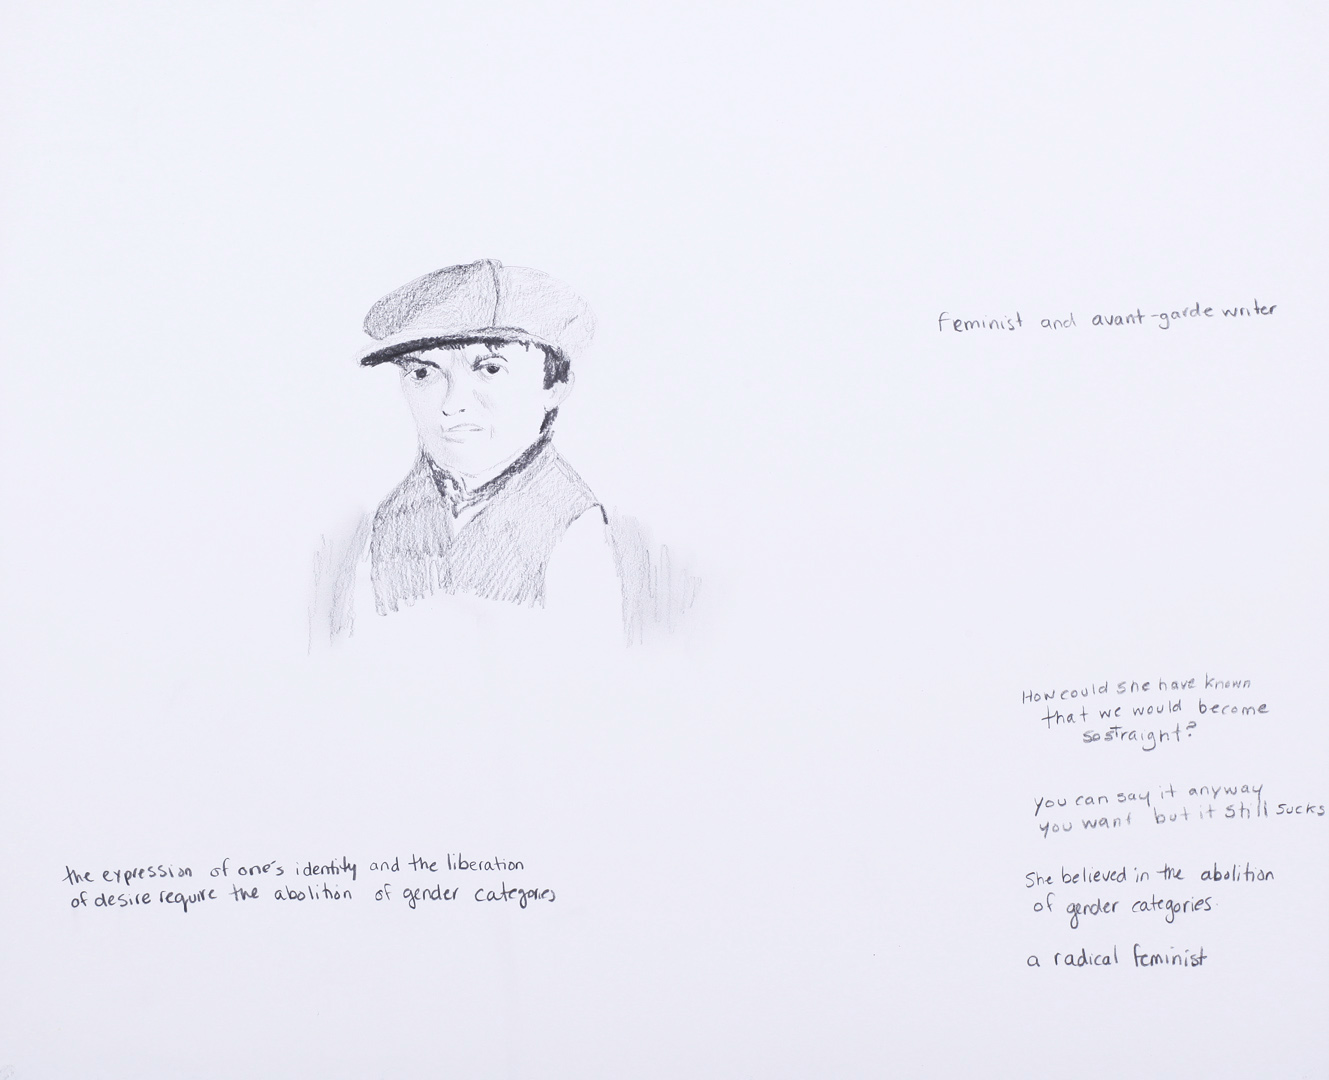 Feminist and avant-garde writer
How could she have known
that we would become
so straight?
you can say it anyway
you want but it still sucks
the expression of one's identity and the liberation
of desire require the abolition of gender categories
She believed in the abolition
of gender categories.
a radical feminist